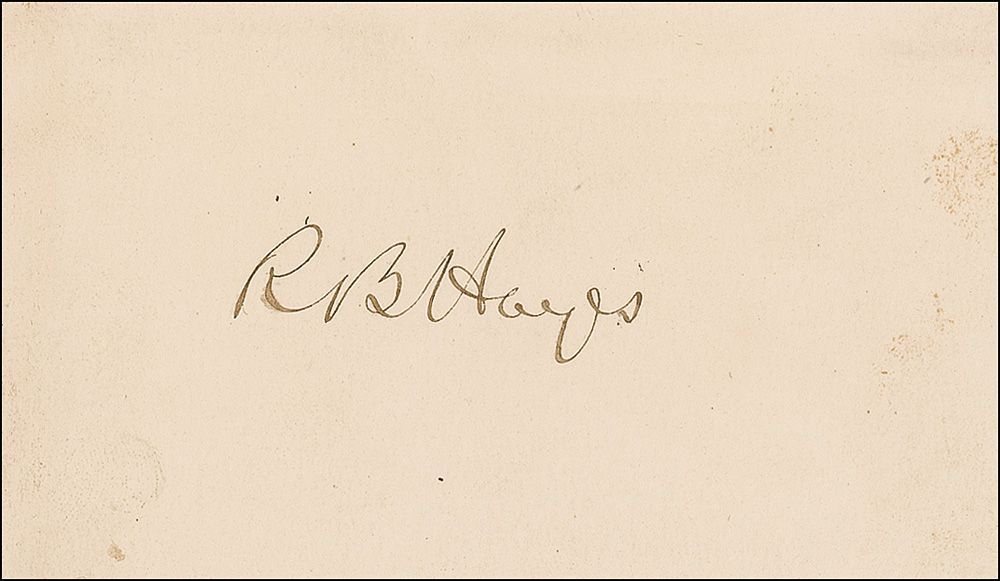 R B Hayes